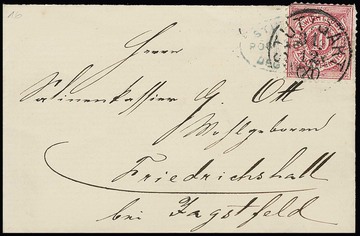 16
Herrn
Salinenkassier G. Ott
Wohlgeboren
Friedrichshall
bei Jagstfeld
STUTTGART
10